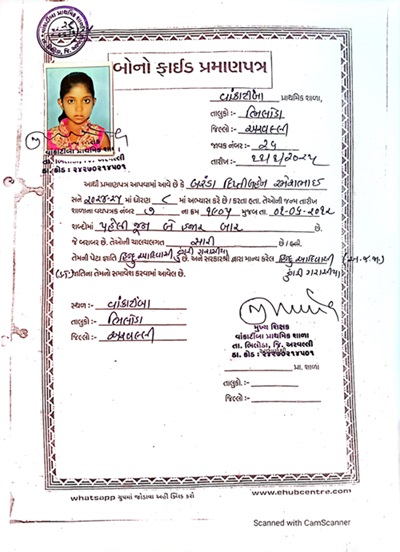 બોનો ફાઈડ પ્રમાણપત્ર
વાંકાટીંબા પ્રાથમિક શાળા,
તાલુકો:- ભિલોડા
જિલ્લો:- અરવલ્લી
જાવક નંબર:- ૨૫
તારીખ:-
વાંકાટીંબા પ્રાથમિક શાળા
આથી પ્રમાણપત્ર આપવામાં આવે છે કે બરંડા
સને ૨૦૨૪-૨૫ માં ધોરણ ૮ માં અભ્યાસ કરે છે / કરતા હતા. તેઓની જન્મ તારીખ
શાળાના વયપત્રક નંબર ૭ ના ક્રમ ૧૯૦૫ મુજબ તા.
શબ્દોમાં પહેલી જૂન બે હજાર બાર છે.
જે બરાબર છે. તેઓની ચાલચલગત સારી છે / હતી.
તેમની પેટા જ્ઞાતિ હિન્દુ આદિવાસી ડુંગરી ગરાસીયા છે. અને સરકારશ્રી દ્વારા માન્ય કરેલ હિન્દુ આદિવાસી (અ.જ.જા)
ડુંગરી ગરાસીયા
જ્ઞાતિના તેમનો સમાવેશ કરવામાં આવેલ છે.
સ્થળ :- વાંકાટીંબા
તાલુકો:- ભિલોડા
જિલ્લો:- અરવલ્લી
મુખ્ય શિક્ષક
વાંકાટીંબા પ્રાથમિક શાળા
તા. ભિલોડા, જિ. અરવલ્લી
ડા. કોડ : ૨૪૨૭૦૨૧૪૫૦૧
પ્રા. શાળા
તાલુકો:-
જિલ્લો:-
whatsapp ગ્રુપમાં જોડાવા અહી ક્લિક કરો
www.ehubcentre.com
Scanned with CamScanner